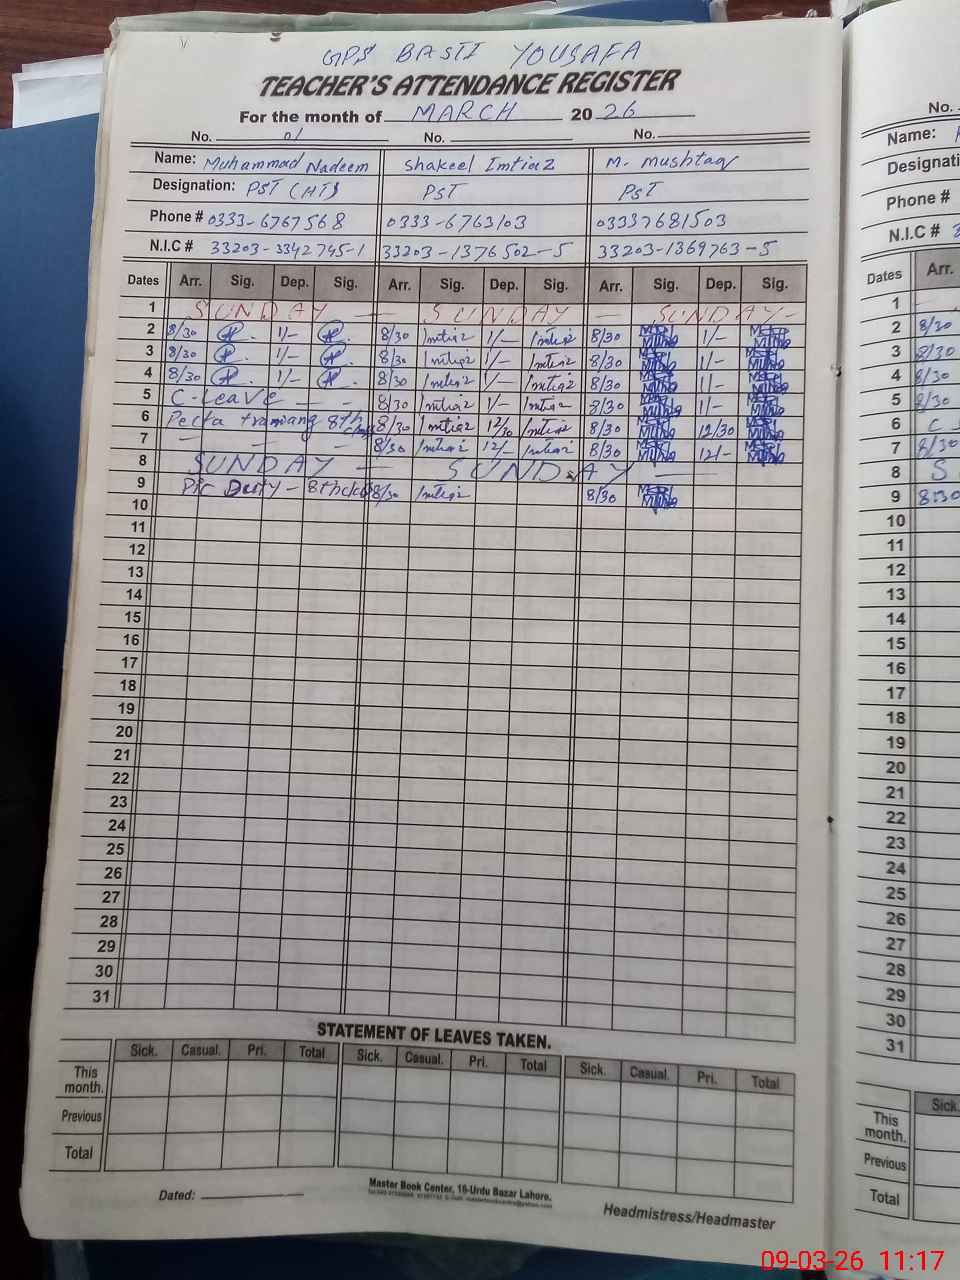 GPS BASTI YOUSAFA
TEACHER'S ATTENDANCE REGISTER
For the month of MARCH 2026
No. 01 No. No.
Name: Muhammad Nadeem Shakeel Imtiaz M. Mushtaq
Designation: PST (HT) PST PST
Phone # 0333-6767568 0333-6763103 03337681503
N.I.C # 33203-3342745-1 33203-1376502-5 33203-1369763-5
Dates Arr. Sig. Dep. Sig. Arr. Sig. Dep. Sig. Arr. Sig. Dep. Sig.
1 SUNDAY — SUNDAY — SUNDAY -
2 8/30 1/- 8/30 Imtiaz 1/- Imtiaz 8/30 1/-
3 8/30 1/- 8/30 Imtiaz 1/- Imtiaz 8/30 1/-
4 8/30 1/- 8/30 Imtiaz 1/- Imtiaz 8/30 1/-
5 C-Leave — — 8/30 Imtiaz 1/- Imtiaz 8/30 1/-
6 Pecta 8th 8/30 Imtiaz 12/30 Imtiaz 8/30 12/30
7 — — 8/30 Imtiaz 12/- Imtiaz 8/30 12/-
8 SUNDAY — SUNDAY —
9 Duty - 8th 8/30 Imtiaz 8/30
10
11
12
13
14
15
16
17
18
19
20
21
22
23
24
25
26
27
28
29
30
31
STATEMENT OF LEAVES TAKEN.
Sick. Casual. Pri. Total Sick. Casual. Pri. Total Sick. Casual. Pri. Total
This month.
Previous
Total
Dated:
Master Book Center, 16-Urdu Bazar Lahore.
Headmistress/Headmaster
No.
Name:
Designati
Phone #
N.I.C # 3
Dates Arr.
1
2 8/30
3 8/30
4 8/30
5 8/30
6 C
7 8/30
8 S
9 8:30
10
11
12
13
14
15
16
17
18
19
20
21
22
23
24
25
26
27
28
29
30
31
Sick.
This month.
Previous
Total
09-03-26 11:17